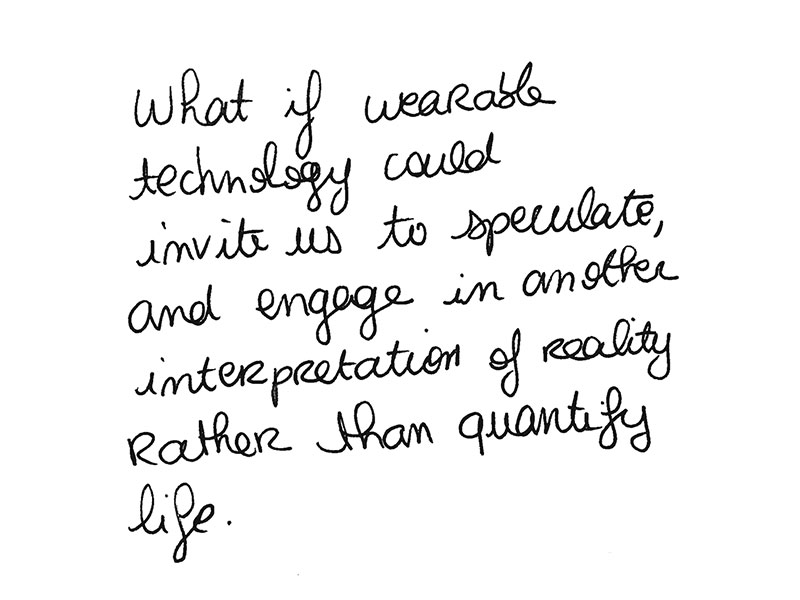 What if wearable
technology could
invite us to speculate,
and engage in another
interpretation of reality
rather than quantify
life.